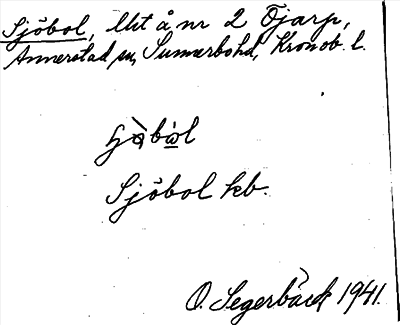 Sjöbol, lht å nr 2 Öjarp,
Annerstad sn, Sunnerbohd, Kronob. l.
Sjöbol kb.
O. Segerbäck 1941.